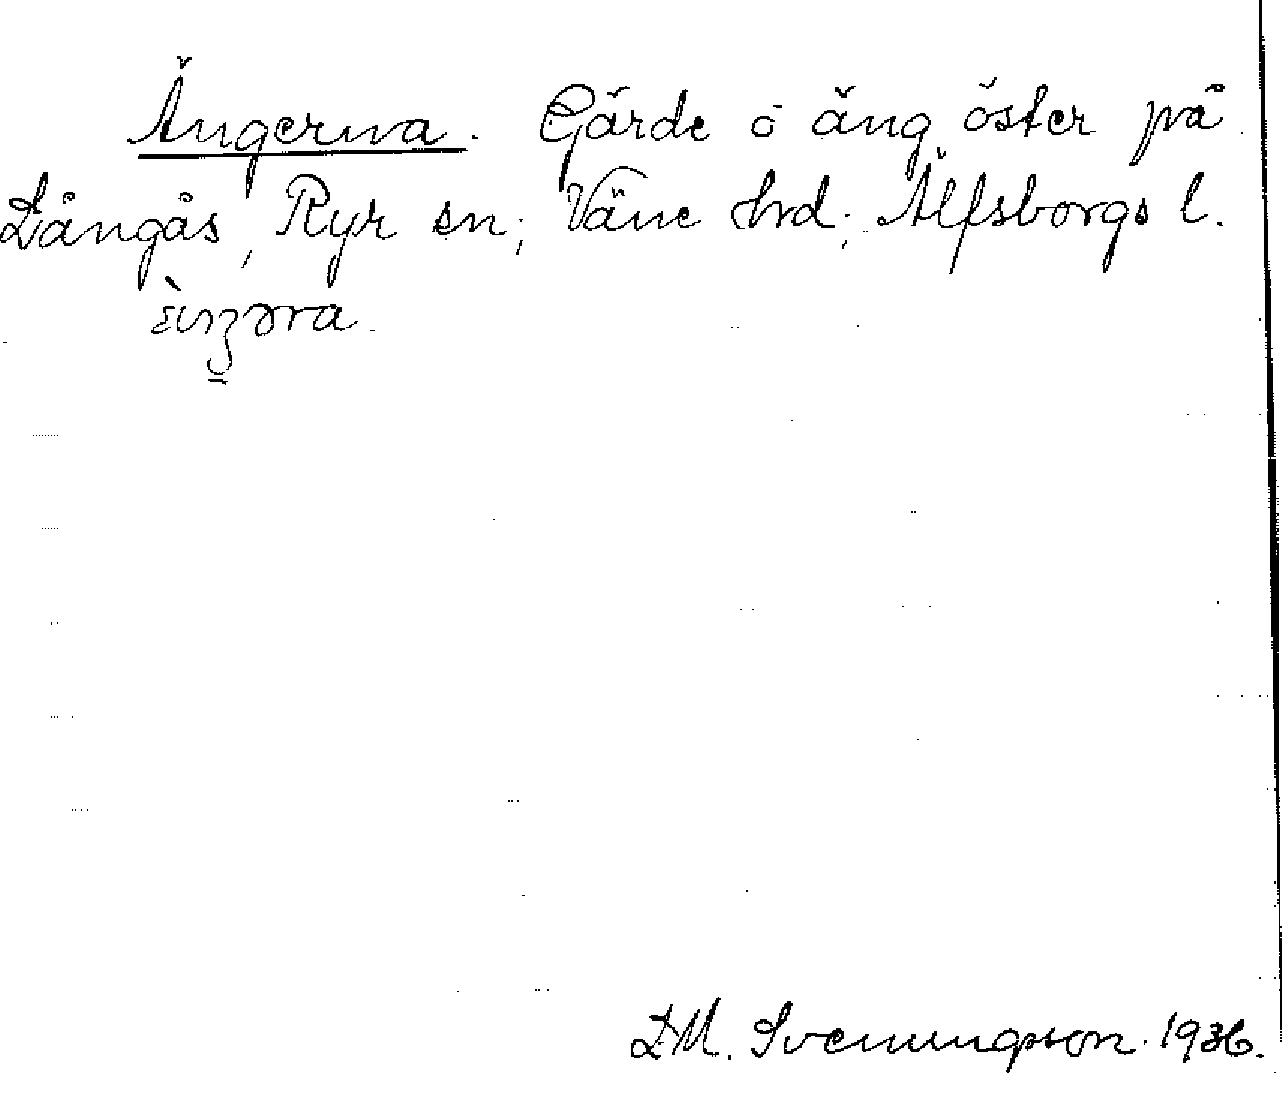 Ängerna. Gärde o äng öster på
Långås, Ryr sn; Väne hrd; Älfsborgs l.
D.M. Svenungsson. 1936.